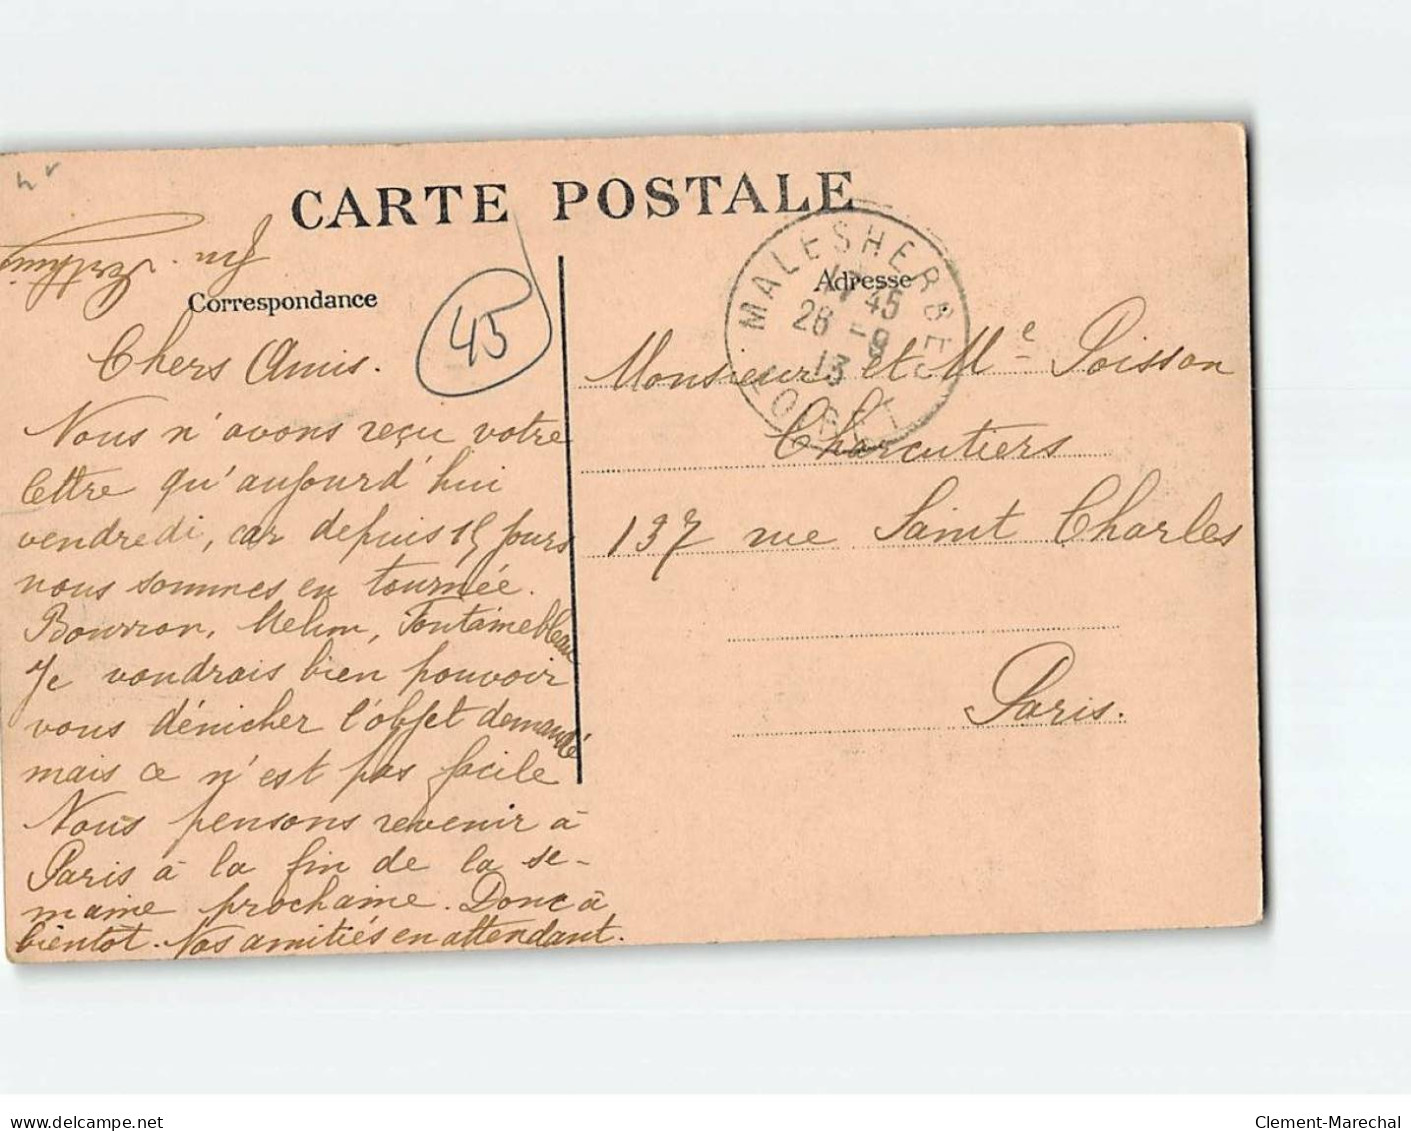 CARTE POSTALE
Correspondance
45
Chers Amis.
Nous n'avons reçu votre
lettre qu'aujourd'hui
vendredi, car depuis 15 jours
nous sommes en tournée.
Bourron, Melun, Fontainebleau
Je voudrais bien pouvoir
vous dénicher l'objet demandé
mais ce n'est pas facile
Nous pensons revenir à
Paris à la fin de la se-
maine prochaine. Donc à
bientôt. Nos amitiés en attendant.
MALESHERBES
17 45
26 -9
13
LOIRET
Adresse
Monsieur et Me Poisson
Charcutiers
137 rue Saint Charles
Paris.
www.delcampe.net
Clement-Marechal